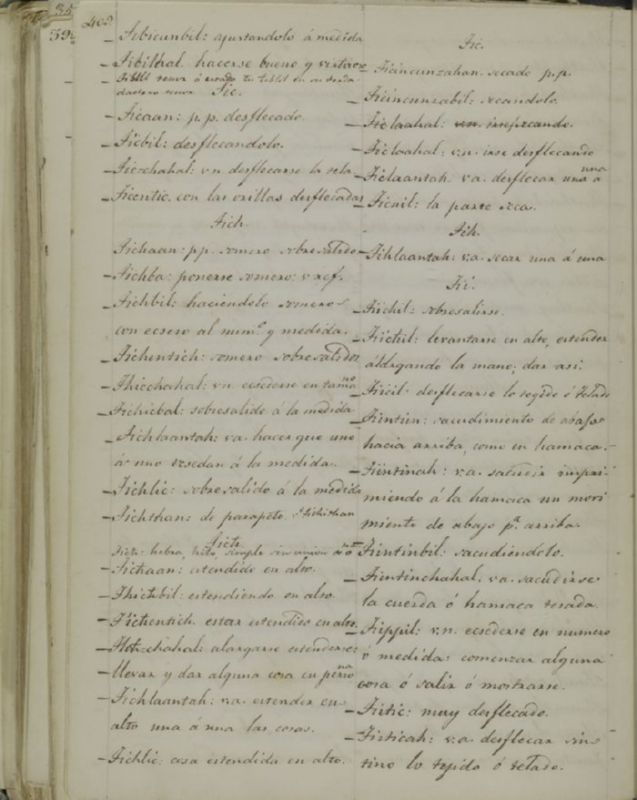 35
39
403
– Tibicunbil: ajustandolo á medida
– Tibilhal. hacerse bueno y
Tic.
– Ticaan: p.p. desflecado.
– Ticbil: desflecandolo.
– Ticchahal: v.n. desflecarse la tela
– Ticentic. con las orillas desflecadas
Tich.
Tichaan: p.p. somero sobresalido
– Tichba: ponerse somero: v ref.
– Tichbil: haciéndolo somero
con ecseso al num.º y medida.
– Tichentich: somero sobresalido
– Thicchahal: v.n. ecsederse en tama no
– Tichicbal: sobresalido á la medida
– Tichlaantah: v.a. hacer que uno
á uno ecsedan á la medida.
– Tichlic: sobresalido á la medida
– Tichthan: de parapeto.
Tich.
– Tichaan: estendido en alto.
– Thichbil: estendiendo en alto.
– Tichentich. estar estendido en alto.
chahal: alargarse estenderse:
llevar y dar alguna cosa en perso na
– Tichlaantah: v.a. estender en
alto una á una las cosas.
– Tichlic: cosa estendida en alto.
Tic.
– Ticincunzahan. secado p.p.
– Ticincunzabil: secandolo.
– Ticlaahal:
– Ticlaahal: v.n. irse desflecando
– Ticlaantah. v.a. desflecar una a una
– Ticail: la parte seca.
Tih.
– Tihlaantah: v.a. secar una á una
Ti.
– Tichil: sobresalirse.
– Tichil: levantarse en alto, estender
alargando la mano; dar asi.
– Ticil: desflecarse lo tegido ó telado
– Tintien: sacudimiento de abajo
hacia arriba, como en hamaca.
– Tintinah: v.a. sacudir impri-
miendo á la hamaca un movi
miento de abajo pª arriba.
– Tintinbil: sacudiendolo.
– Tintinchahal. v.a. sacudirse
la cuerda ó hamaca tesada.
– Tippil: v.n. ecsederse en numero
ó medida: comenzar alguna
cosa ó salir ó mostrarse.
– Tictic: muy desflecado.
– Ticticah: v.a. desflecar sin
tino lo tejido ó telado.